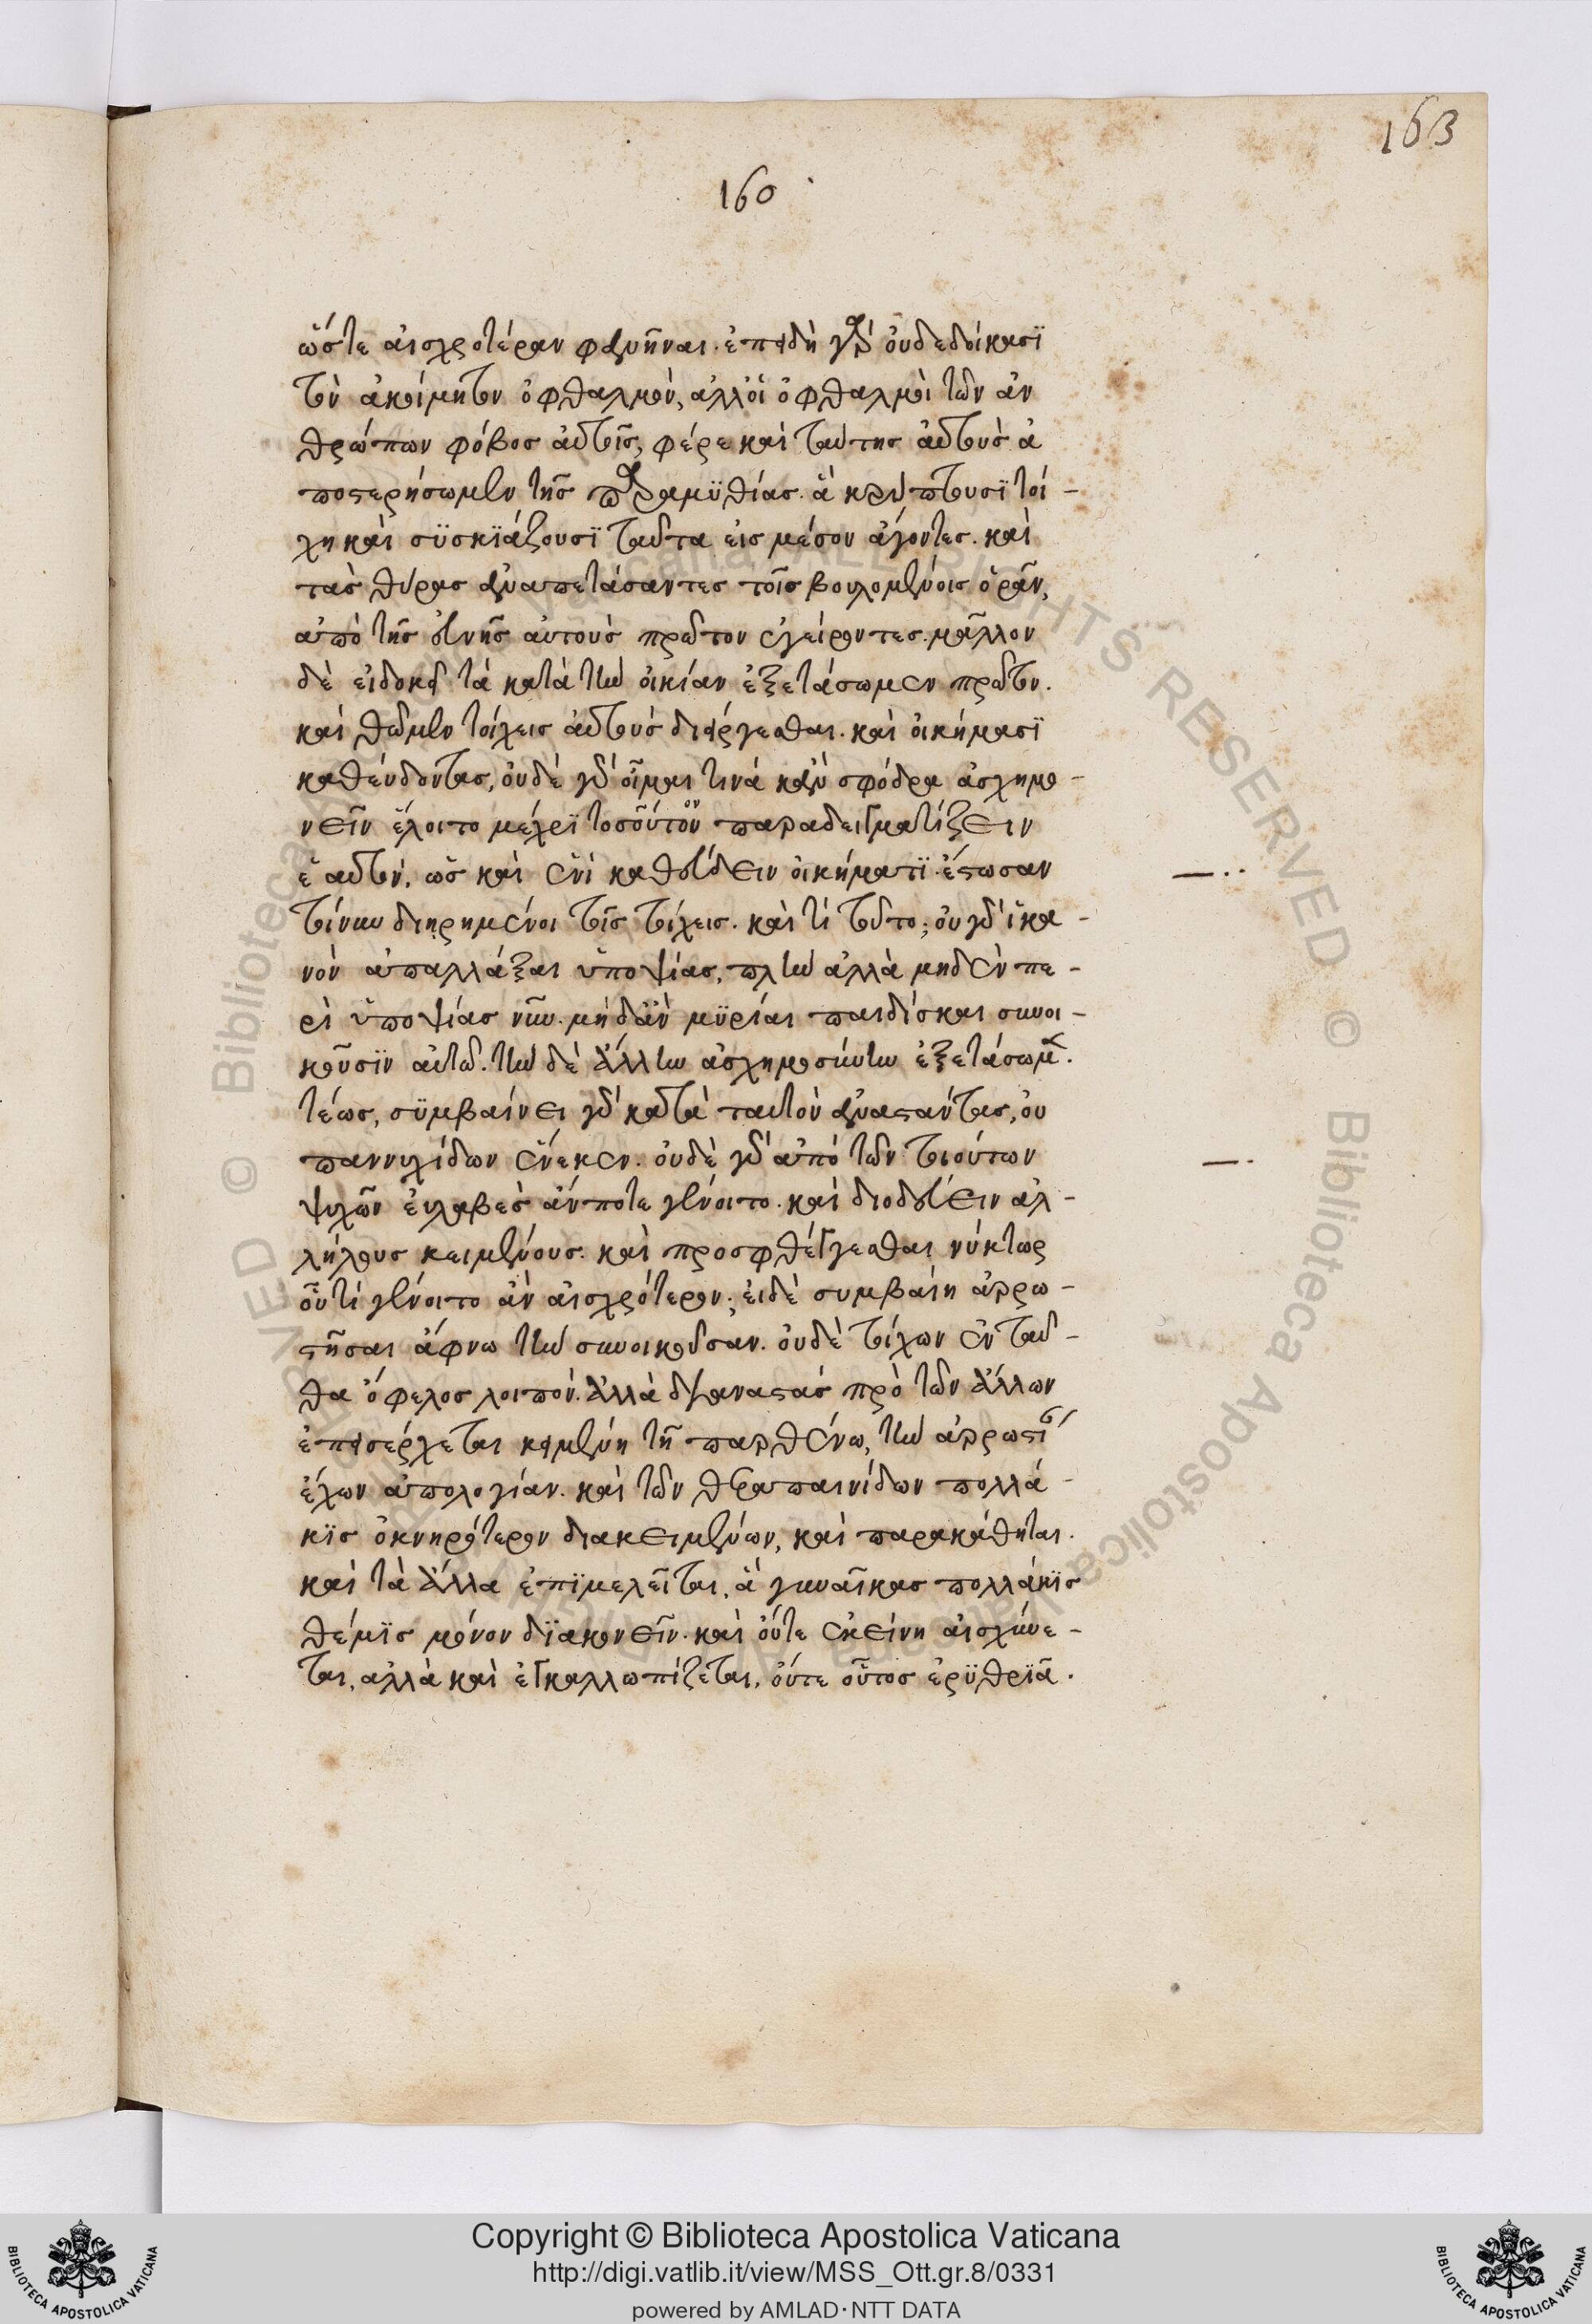 163
160
ὥστε αἰσχροτέραν φανῆναι. ἐπειδὴ γὰρ οὐ δεδοίκασϊ
τὸν ἀκοίμητον ὀφθαλμὸν, ἀλλ' οἱ ὀφθαλμοὶ τῶν ἀν
θρώπων φόβος αὐτοῖς, φέρε καὶ ταύτης αὐτοὺς ἀ
ποστερήσωμεν τῆς παραμϋθίας. ἃ κρύπτουσϊ τοί -
χη καὶ σϋσκϊάζουσϊ ταῦτα εἰς μέσον ἄγοντες. καὶ
τὰς θύρας ἀναπετάσαντες τοῖς βουλομένοις ὁρᾶν,
ἀπὸ τῆς εὐνῆς αὐτοὺς πρῶτον ἐγείροντες. μᾶλλον
δὲ εἰ δοκεῖ τὰ κατὰ τὴν οἰκίαν ἐξετάσωμεν πρῶτον.
καὶ θῶμεν τοίχεις αὐτοὺς διείργεσθαι. καὶ οἰκήμασϊ
καθεύδοντας, οὐδὲ γὰρ οἶμαι τινὰ κἂν σφόδρα ἀσχημο -
νεῖν ἕλοιτο μέχρϊ τοσοῦτον παραδειγματίζειν
ἑαυτὸν, ὡς καὶ ἑνὶ καθεύδειν οἰκήματϊ. ἔστωσαν
τοίνυν διῃρημένοι τοῖς τοίχεις. καὶ τί τοῦτο; οὐ γὰρ ἱκα -
νὸν ἀπαλλάξαι ὑποψίας, πλὴν ἀλλὰ μηδὲν πε -
ρὶ ὑποψίας νῦν. μὴ δ' ἂν μϋρίαι παιδίσκαι συνοι -
κοῦσϊν αὐτῷ. τὴν δὲ ἄλλην ἀσχημοσύνην ἐξετάσωμεν.
τέως, σϋμβαίνει γὰρ κατὰ ταυτὸν ἀναστάντας, οὐ
παννυχίδων ἕνεκεν. οὐδὲ γὰρ ἀπὸ τῶν τοιούτων
ψυχῶν εὐλαβὲς ἄν ποτε γένοιτο. καὶ διοδεύειν ἀλ -
λήλους κειμένους. καὶ προσφθέγγεσθαι νύκτωρ
οὗ τί γένοιτο ἂν αἰσχρότερον; εἰ δὲ συμβαίη ἀρρω -
στῆσαι ἄφνω τὴν συνοικοῦσαν. οὐδὲ τοίχων ἐνταῦ -
θα ὄφελος λοιπὸν. ἀλλὰ διαναστὰς πρὸ τῶν ἄλλων
ἐπεισέρχεται κειμένη τῇ παρθένω, τὴν ἀρρωστίαν
ἔχων ἀπολογίαν. καὶ τῶν θεραπαινίδων πολλά -
κϊς ὀκνηρότερον διακειμένων, καὶ παρακάθηται.
καὶ τὰ ἄλλα ἐπϊμελεῖται, ἃ γυναῖκας πολλάκϊς
θέμϊς μόνον δϊακονεῖν. καὶ οὔτε ἐκείνη αἰσχύνε -
ται, ἀλλὰ καὶ ἐγκαλλωπίζεται, οὔτε οὗτος ἐρϋθρϊᾶ.
© Biblioteca Apostolica Vaticana ALL RIGHTS RESERVED © Biblioteca Apostolica Vaticana
Copyright © Biblioteca Apostolica Vaticana
http://digi.vatlib.it/view/MSS_Ott.gr.8/0331
powered by AMLAD·NTT DATA
BIBLIOTECA APOSTOLICA VATICANA
BIBLIOTECA APOSTOLICA VATICANA